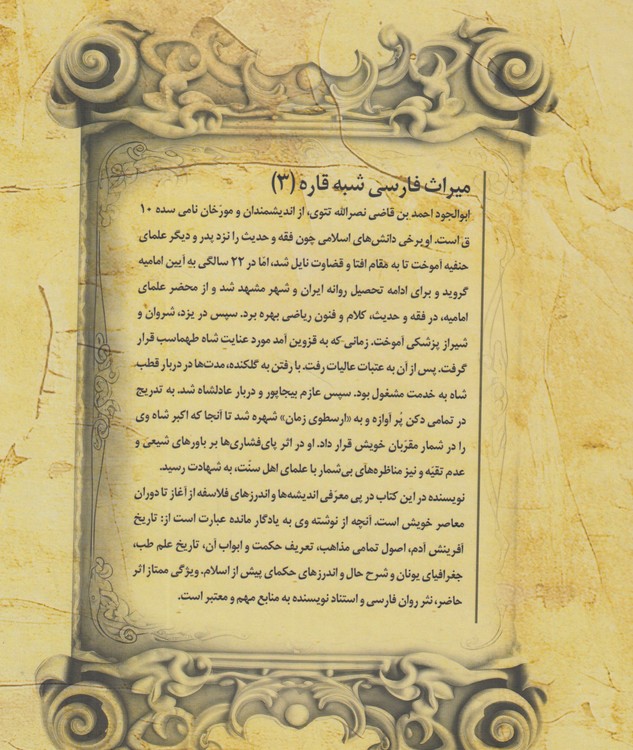 میراث فارسی شبه قاره (۳)
ابوالجود احمد بن قاضی نصرالله تتوی، از اندیشمندان و مورّخان نامی سده ۱۰
ق است. او برخی دانش‌های اسلامی چون فقه و حدیث را نزد پدر و دیگر علمای
حنفیه آموخت تا به مقام افتا و قضاوت نایل شد، امّا در ۲۲ سالگی به آیین امامیه
گروید و برای ادامه تحصیل روانه ایران و شهر مشهد شد و از محضر علمای
امامیه، در فقه و حدیث، کلام و فنون ریاضی بهره برد. سپس در یزد، شروان و
شیراز پزشکی آموخت. زمانی که به قزوین آمد مورد عنایت شاه طهماسب قرار
گرفت. پس از آن به عتبات عالیات رفت. با رفتن به گلکنده، مدت‌ها در دربار قطب
شاه به خدمت مشغول بود. سپس عازم بیجاپور و دربار عادلشاه شد. به تدریج
در تمامی دکن پُر آوازه و به «ارسطوی زمان» شهره شد تا آنجا که اکبر شاه وی
را در شمار مقرّبان خویش قرار داد. او در اثر پای‌فشاری‌ها بر باورهای شیعی و
عدم تقیّه و نیز مناظره‌های بی‌شمار با علمای اهل سنّت، به شهادت رسید.
نویسنده در این کتاب در پی معرّفی اندیشه‌ها و اندرزهای فلاسفه از آغاز تا دوران
معاصر خویش است. آنچه از نوشته وی به یادگار مانده عبارت است از: تاریخ
آفرینش آدم، اصول تمامی مذاهب، تعریف حکمت و ابواب آن، تاریخ علم طب،
جغرافیای یونان و شرح حال و اندرزهای حکمای پیش از اسلام. ویژگی ممتاز اثر
حاضر، نثر روان فارسی و استناد نویسنده به منابع مهم و معتبر است.